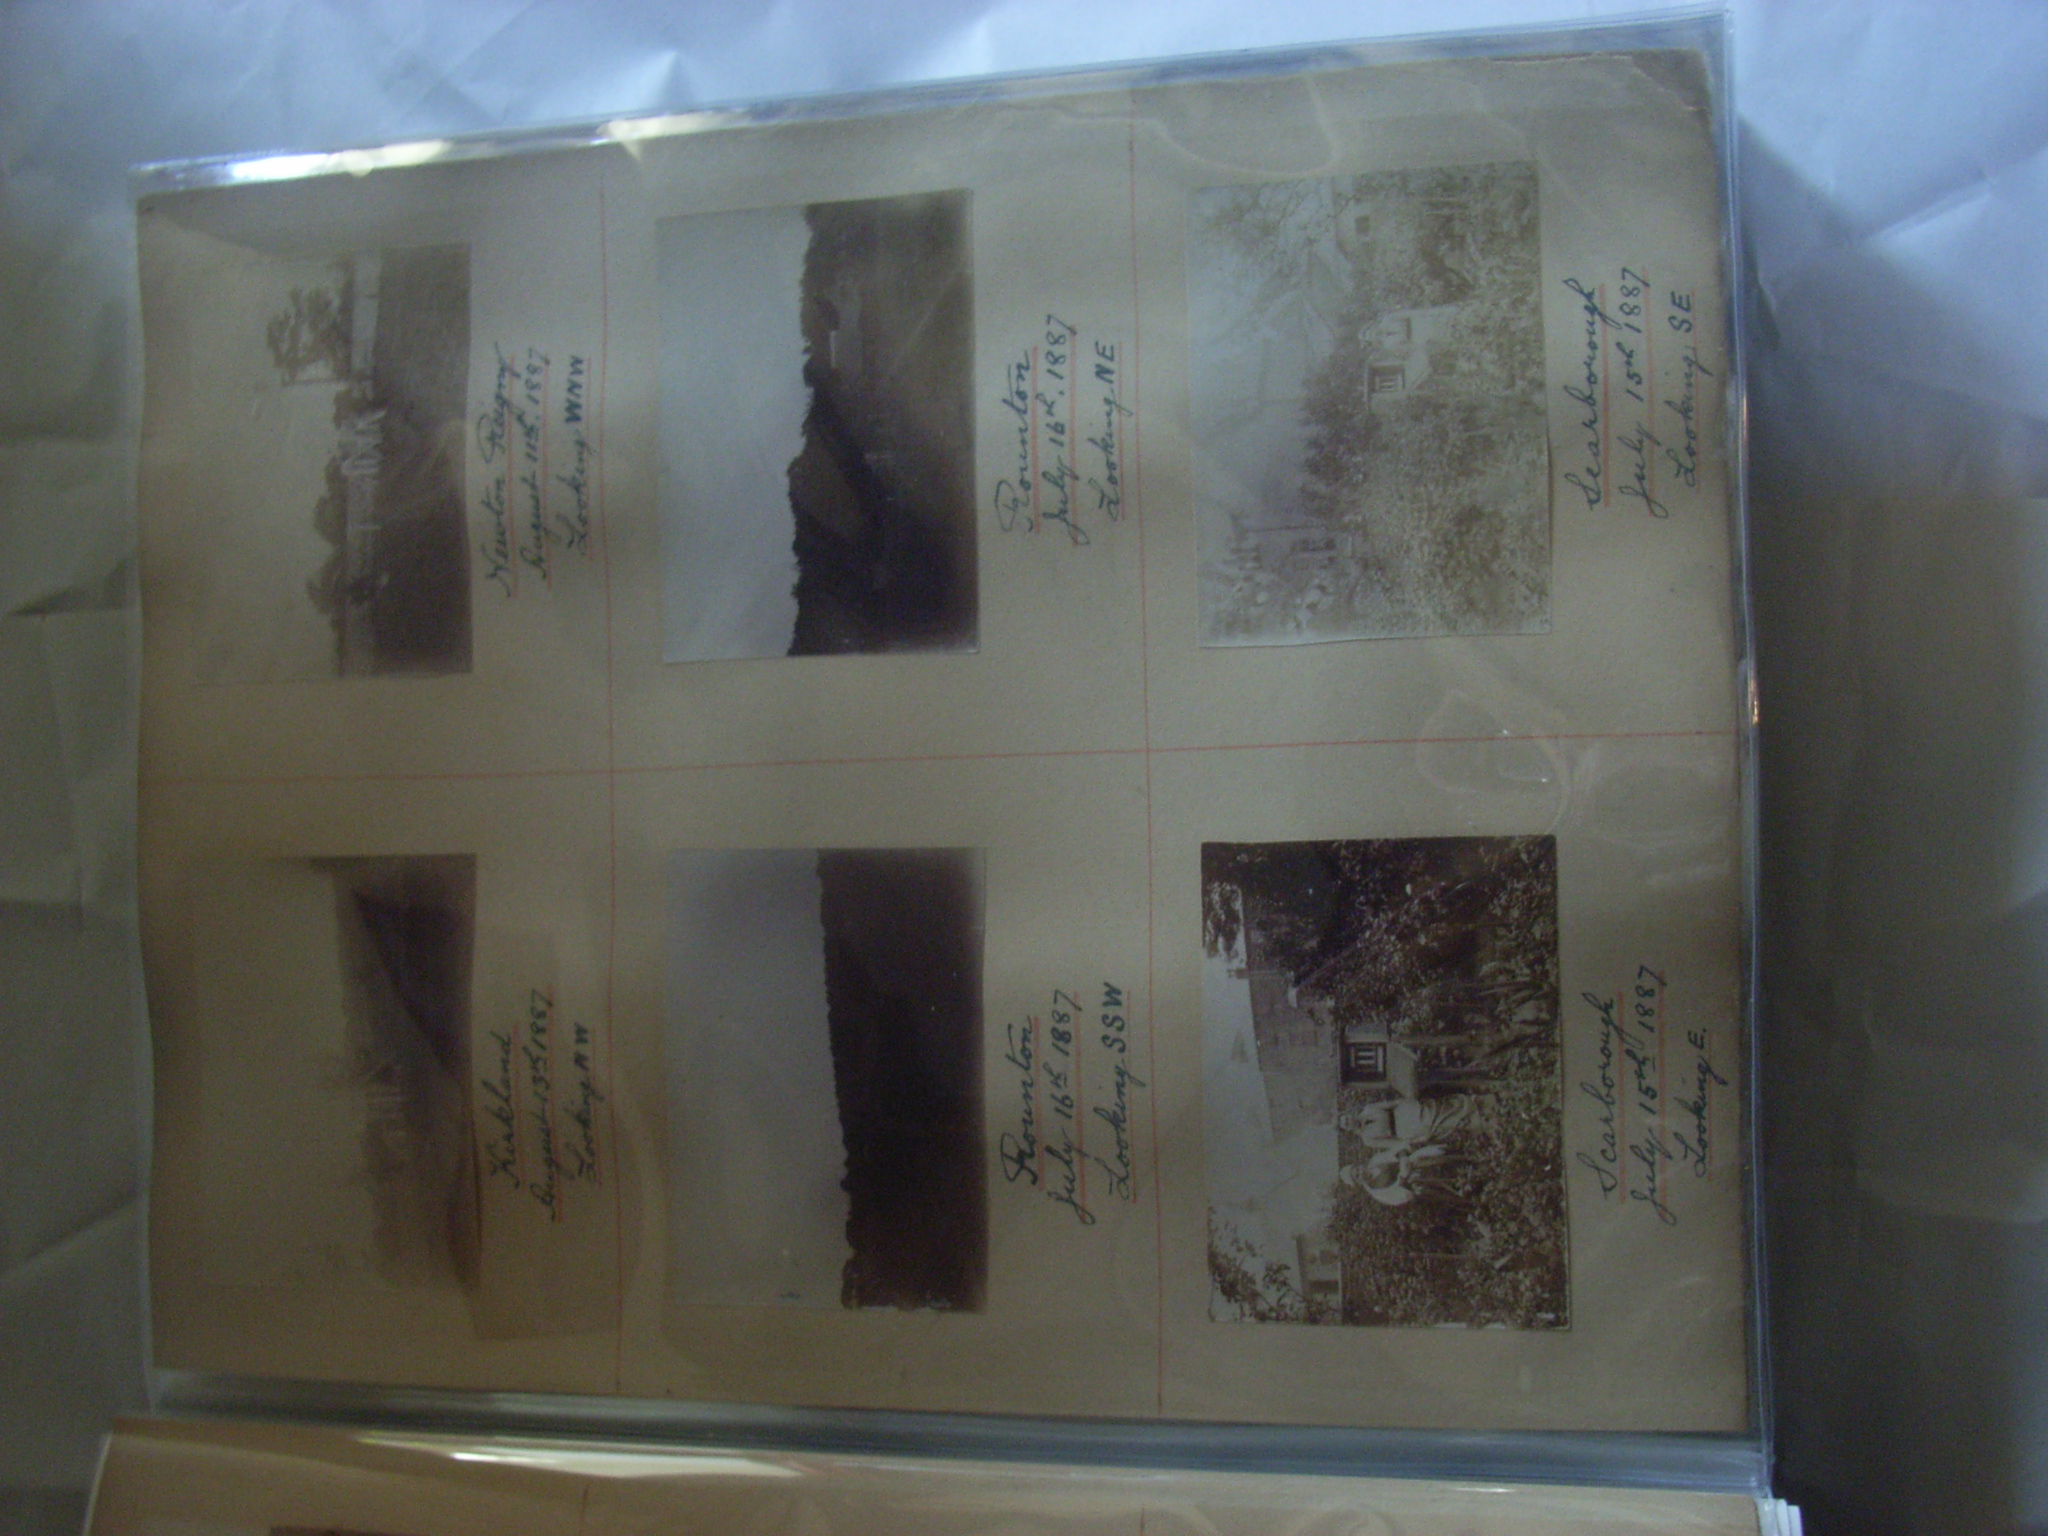 Kirkland
August 13th 1887
Looking NW
Newton Reigny
August 11th. 1887
Looking WNW
Rounton
July 16th 1887
Looking SSW
Rounton
July 16th. 1887
Looking NE
Scarborough
July 15th 1887
Looking E.
Scarborough
July 15th 1887
Looking SE